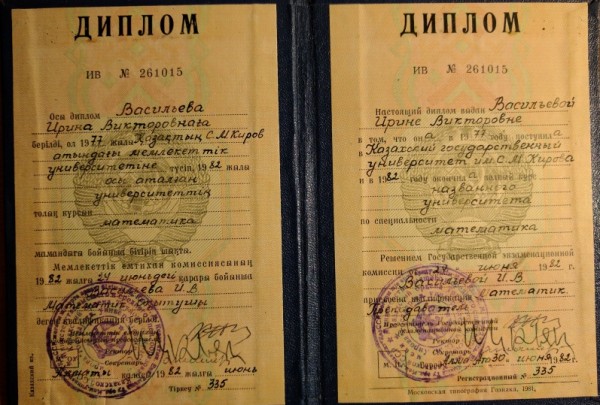 ДИПЛОМ
ИВ № 261015
Осы диплом Васильева
Ирина Викторовнаға
берілді, ол 1977 жылы Қазақтың С.М.Киров
атындағы мемлекеттік
университетіне түсіп, 1982 жылы
осы аталған
университеттің
толық курсын
математика
мамандығы бойынша бітіріп шықты.
Мемлекеттік емтихан комиссиясының
1982 жылғы 24 июньдегі қарары бойынша
Васильева И.В.
Математик
квалификация берілді
Секретарь
Алматы 1982 жылғы июнь
Тіркеу № 335
ДИПЛОМ
ИВ № 261015
Настоящий диплом выдан Васильевой
Ирине Викторовне
в том, что она в 1977 году поступила
в Казахский государственный
университет им. С.М.Кирова
и в 1982 году окончила полный курс
названного
университета
по специальности
математика
Решением Государственной экзаменационной
комиссии от 24 июня 1982 г.
Васильевой И.В.
присвоена квалификация Математик.
Преподаватель
Председатель Государственной
экзаменационной комиссии
Ректор
Секретарь
М. П. Город 30 июня 1982 г.
Регистрационный № 335
Московская типография Гознака, 1981.